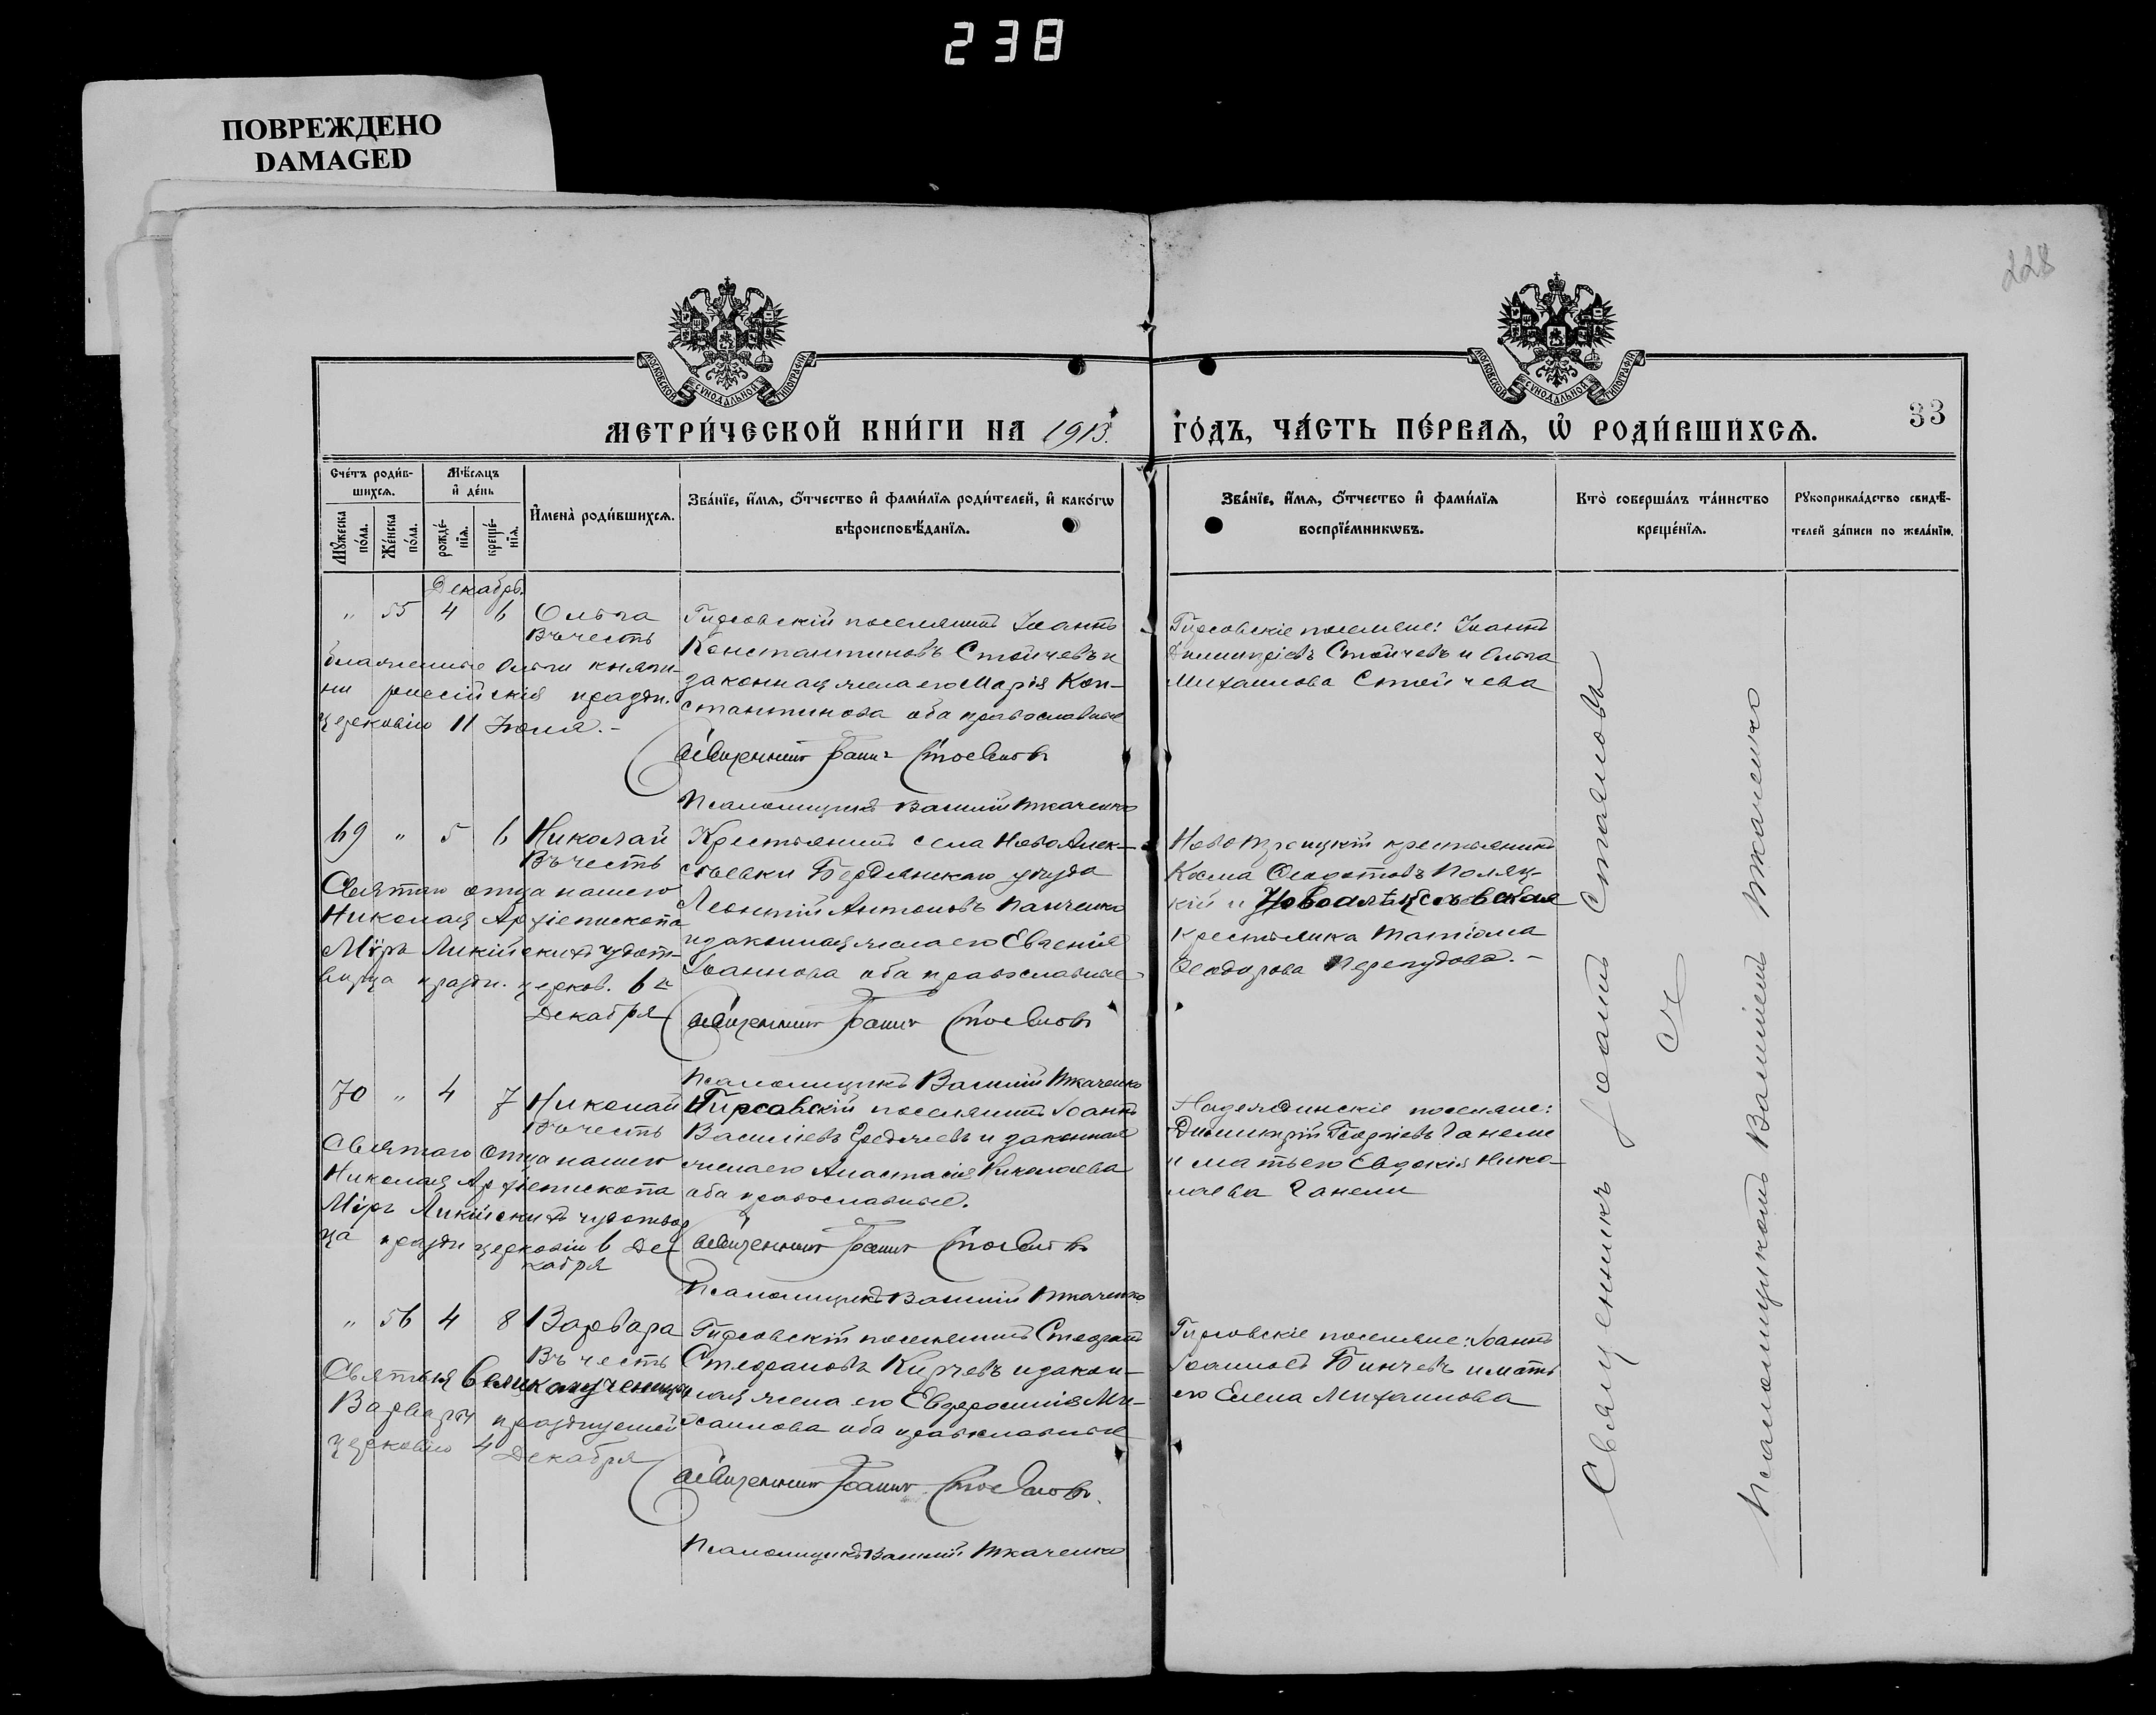 238
ПОВРЕЖДЕНО
DAMAGED
228
МОСКОВСКОЙ СѴНОДАЛЬНОЙ ТИПОГРАФІИ
МОСКОВСКОЙ СѴНОДАЛЬНОЙ ТИПОГРАФІИ
МЕТРИ́ЧЕСКОЙ КНИ́ГИ НА 1913. ГО́ДЪ, ЧА́СТЬ ПЕ́РВАѦ, Ѡ҆ РОДИ́ВШИХСѦ.
33
Сче́тъ роди́в-
шихсѧ.
Мѣ́сѧцъ
и҆ де́нь
Мꙋ́жеска
по́ла.
Же́нска
по́ла.
рожде́-
нїѧ.
креще́-
нїѧ.
И҆мена̀ роди́вшихсѧ.
Зва́нїе, и҆́мѧ, ѻ҆́тчество и҆ фами́лїѧ роди́телей, и҆ како́гѡ
вѣроисповѣ́данїѧ.
Зва́нїе, и҆́мѧ, ѻ҆́тчество и҆ фами́лїѧ
воспрїе́мникѡвъ.
Кто̀ соверша́лъ та́инство
креще́нїѧ.
Рꙋкоприкла́дство свидѣ́-
телей за́писи по жела́нїю.
Декабрь.
" 55 4 6 Ольга
Въ честь
блаженные Ольги княги-
ни россійскія праздн.
церковію 11 Іюля.-
Гирсовскій поселянинъ Іоаннъ
Константиновъ Стойчевъ и
законная жена его Марія Кон-
стантинова оба православные
Священникъ Іоаннъ Стоеновъ
Псаломщикъ Василій Ткаченко
Гирсовскіе поселяне: Іоаннъ
Димитріевъ Стойчевъ и Ольга
Михаилова Стойчева
69 " 5 6 Николай
Въ честь
Святаго отца нашего
Николая Архіепископа
Мѵръ Ликійскихъ чудот-
ворца праздн. церков. 6го
Декабря
Крестьянинъ села НовоАлек-
сѣевки Бердянскаго уѣзда
Леонтій Антоновъ Панченко
и законная жена его Евгенія
Іоаннова оба православные
Священникъ Іоаннъ Стоеновъ
Псаломщикъ Василій Ткаченко
Новотроицкій крестьянинъ
Косма Ѳедотовъ Поляц-
кій и Новоалѣксѣевская
крестьянка Татіана
Ѳеодорова Перепудова.-
70 " 4 7 Николай
Въ честь
Святаго Отца нашего
Николая Архіепископа
Мѵръ Ликійскихъ чудотвор
ца праздн церковію 6 Де-
кабря
Гирсовскій поселянинъ Іоаннъ
Василіевъ и законная
жена его Анастасія Николаева
оба православные.
Священникъ Іоаннъ Стоеновъ
Псаломщикъ Василій Ткаченко
Надеждинскіе поселяне:
Димитрій Георгіевъ Ганели
и мать его Евдокія Нико-
лаева Ганели
" 56 4 8 Варвара
Въ честь
Святыя Великомученицы
Варвары празднуемой
церковію 4 Декабря
Гирсовскій поселянинъ Стефанъ
Стефановъ Кирчевъ и закон-
ная жена его Евфросинія Ми-
хаилова оба православные
Священникъ Іоаннъ Стоеновъ.
Псаломщикъ Василій Ткаченко
Гирсовскіе поселяне: Іоаннъ
Іоанновъ Бинчевъ и мать
его Елена Михаилова
Священникъ Іоаннъ Стаянова
съ
Псаломщикомъ Василіемъ Ткаченко